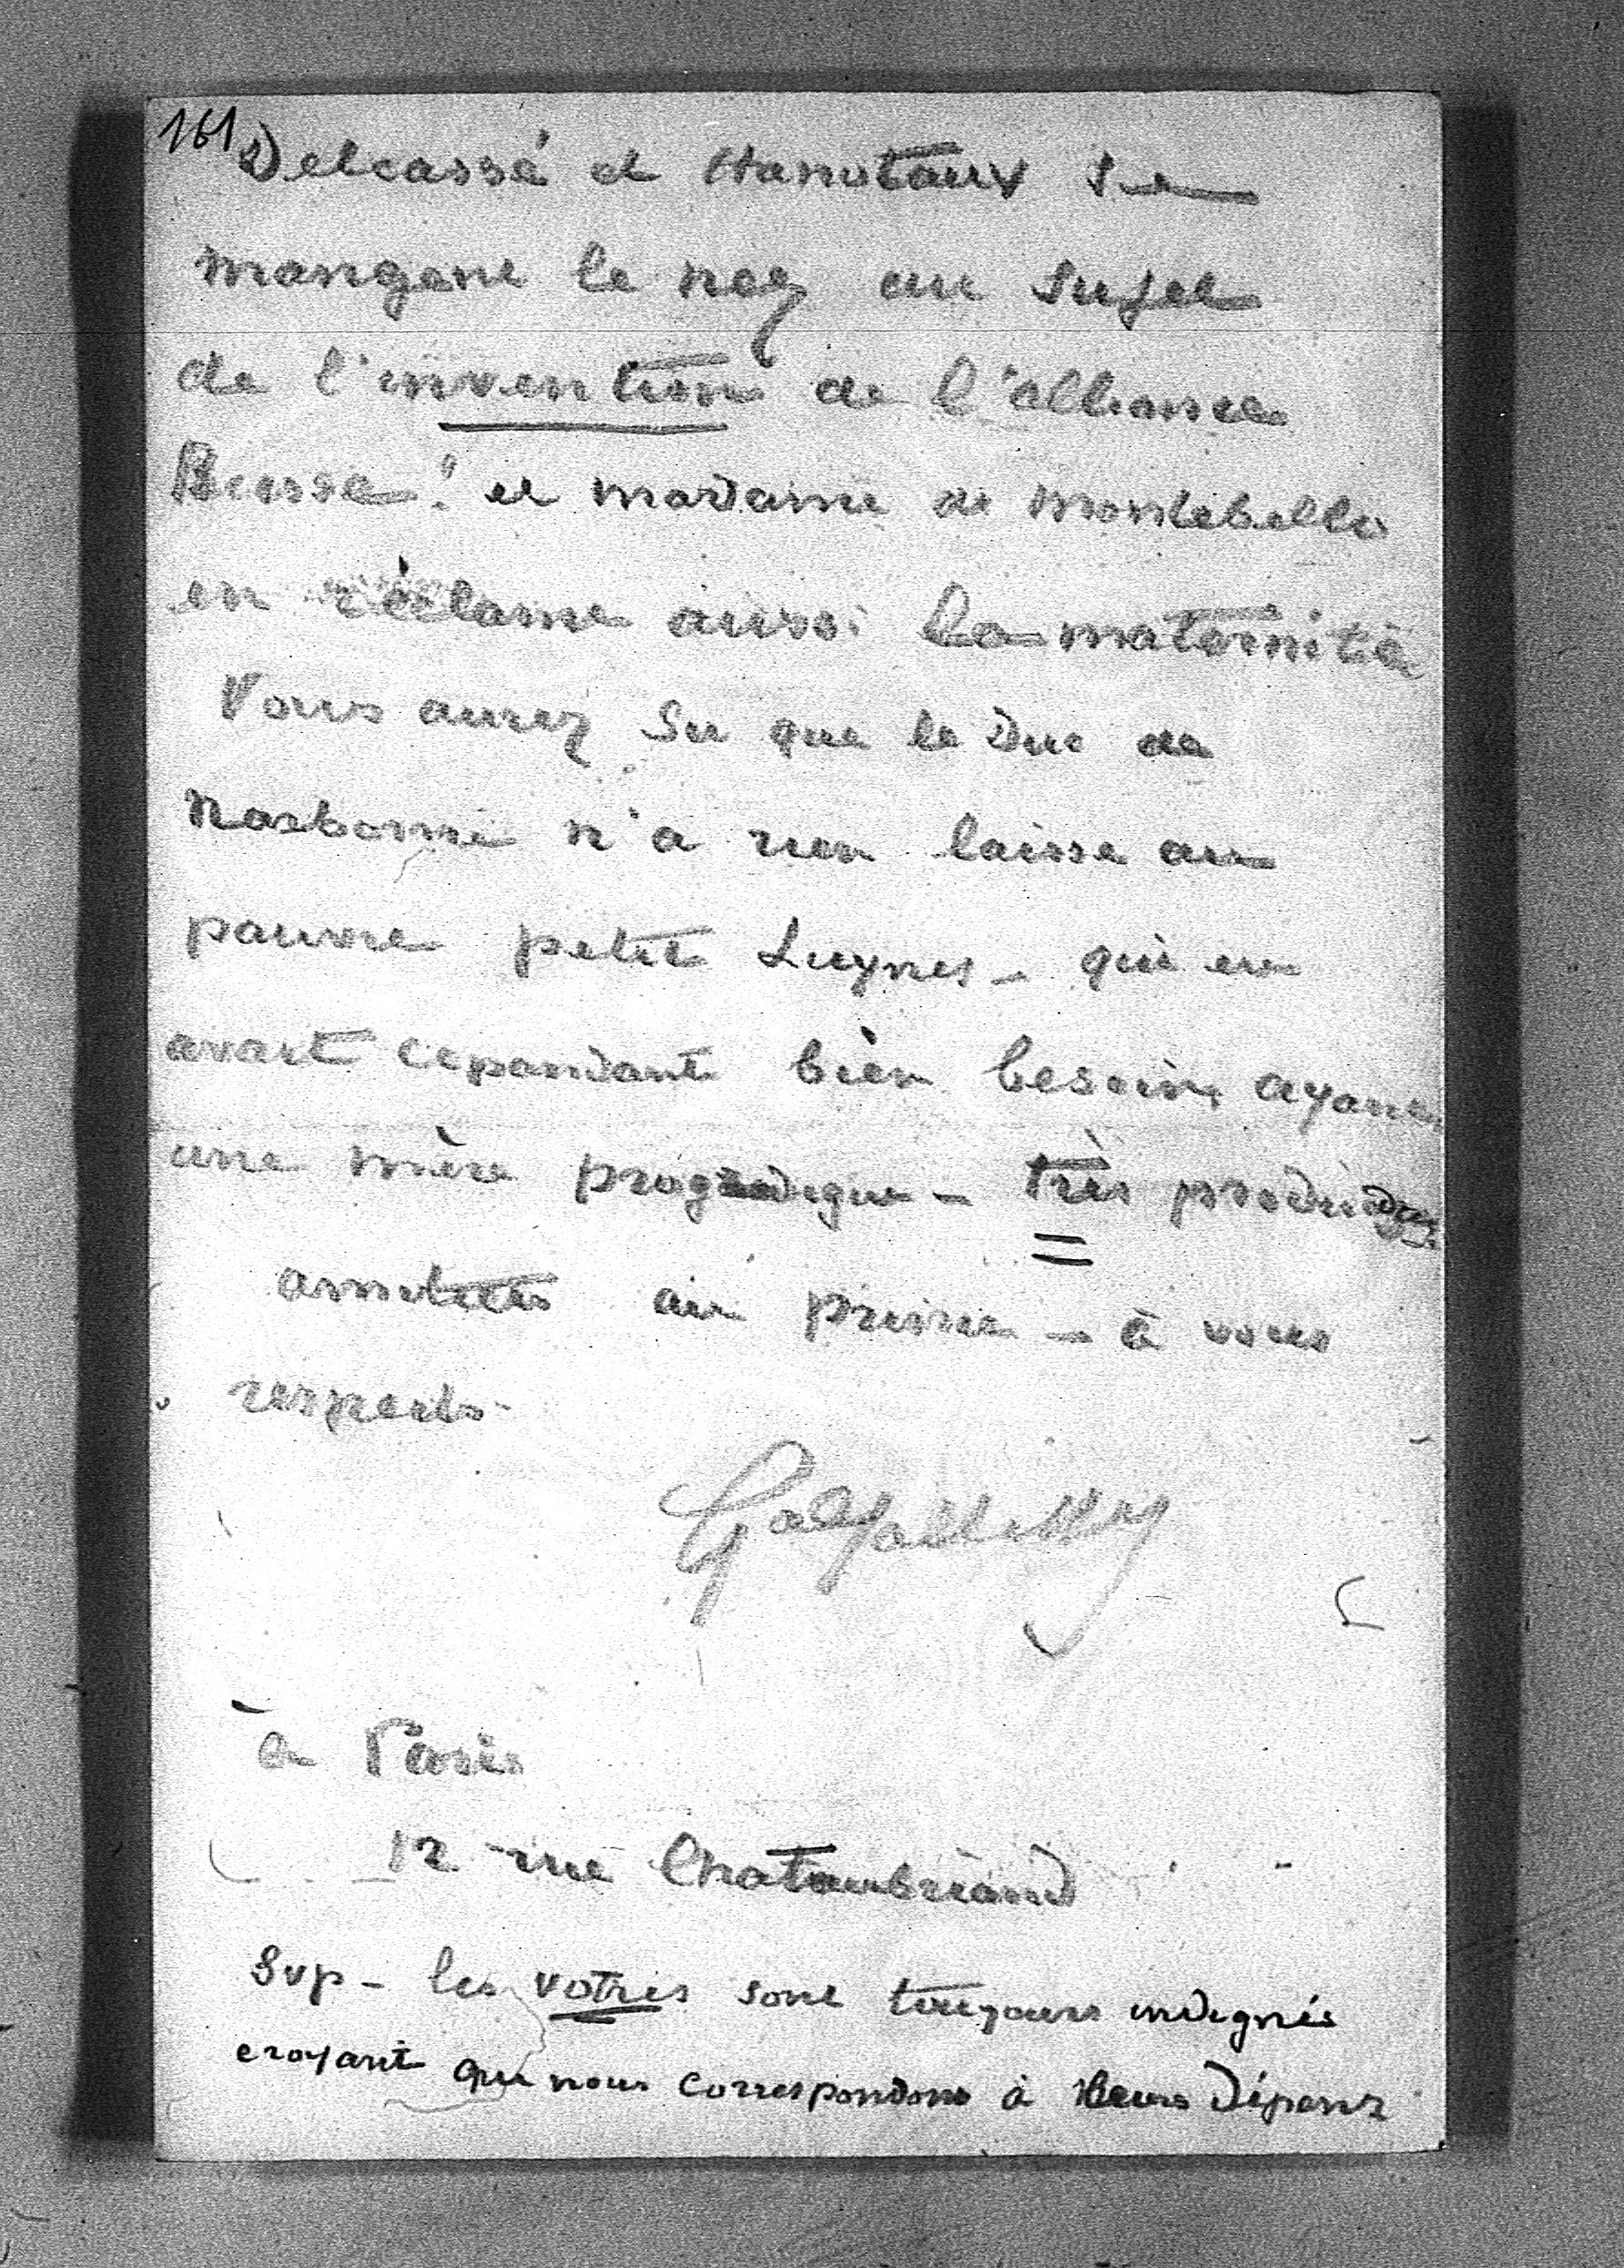 161
Delcassé et Hanotaux se
mangent le nez au sujet
de l'invention de l'alliance
Russe! et madame de Montebello
en réclame aussi la maternité
Vous aurez su que le Duc de
Narbonne n'a rien laissé au
pauvre petit Luynes - qui en
avait cependant bien besoin, ayant
une mère prodigue - très prodigue
amitiés au prince - à vous
respects -
Gal Galliffet
à Paris
12 rue Chateaubriand
Svp - les votres sont toujours indignés
croyant que nous correspondons à leurs dépens